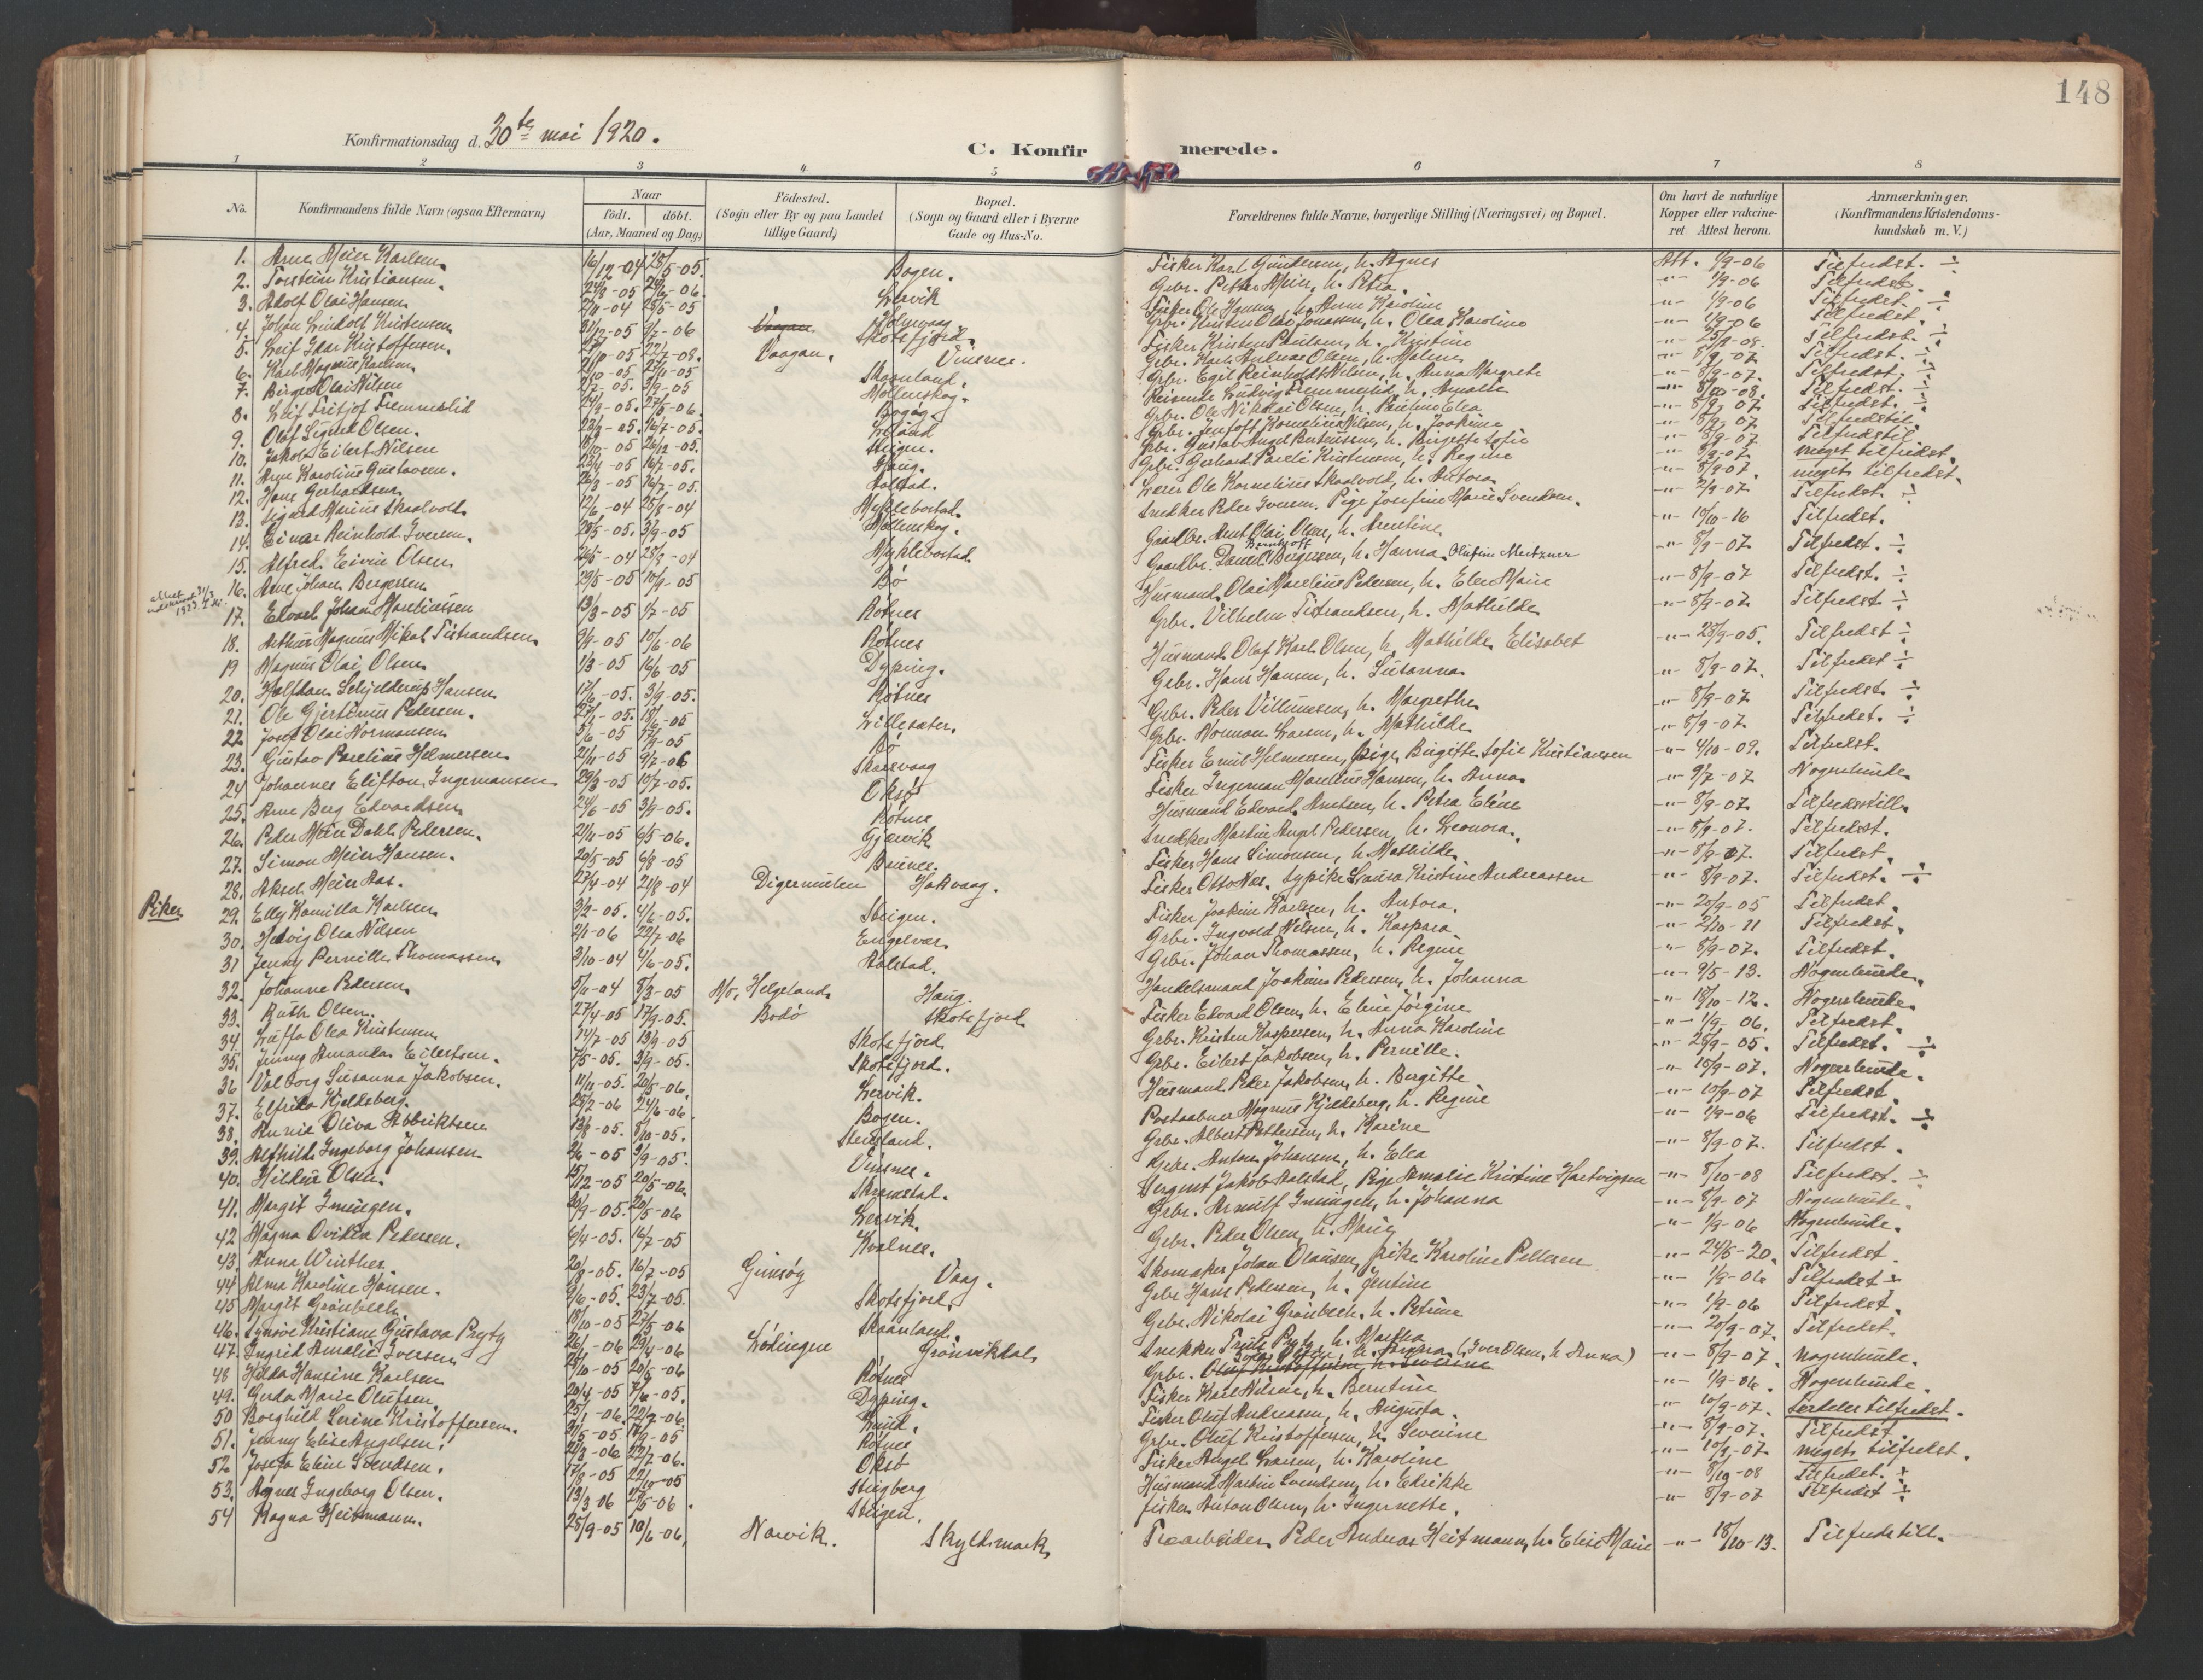 148
Konfirmationsdag d. 30te mai 1920.
C. Konfirmerede.
1 2 3 4 5 6 7 8
No. Konfirmandens fulde Navn (ogsaa Efternavn) Naar födt. döbt. (Aar, Maaned og Dag) Födested. (Sogn eller By og paa Landet tillige Gaard) Bopæl. (Sogn og Gaard eller i Byerne Gade og Hus-No. Forældrenes fulde Navne, borgerlige Stilling (Næringsvei) og Bopæl. Om havt de naturlige Kopper eller vakcineret. Attest herom. Anmærkninger. (Konfirmandens Kristendomskundskab m. V.)
1. Arne Meier Karlsen 16/12-04 28/5-05. Bogen. Fisker Karl Gundersen, h. Agnes Att. 1/9-06 Tilfredst. ÷
2. Torstein Kristiansen. Lervik Gbr. Petter Meier, h. Petra. -"- 1/9-06 Tilfredst.
3. Adolf Olai Hansen 25/5-05 Holmvaag Fisker Ole Hansen, h. Anne Karoline -"- 1/9-06 Tilfredst. ÷
4. Johan Leindolf Kristensen 31/12-05 Vaagan Skotsfjord. Grbr. Kristen Olai Jonassen, h. Olea Karoline -"- 1/9-06 Tilfredst.
5. Leif Idar Kristoffersen. 22/7-08. Vaagan. Vinsnes. Fisker Kristen Paulsen, h. Kristine -"- Tilfredst. ÷
6. Karl Magnus Karlsen 23/11-05 Skaanland. Grbr. Karl Andreas Olsen, h. Maline -"- 8/9-07 Tilfredst. ÷
7. Birger Olai Nilsen 3/9-05 Mollenskog. Grbr. Egil Reinholdt Nilsen, h. Anna Margrete -"- 8/9-07. Tilfredst. ÷
8. Leif Fritjof Fremmerlid 24/9-05. 27/5-06. Bogøy Reisende Ludvig Fremmerlid, h. Amalie -"- 8/10-08. Tilfredst. ÷
9. Olaf Sigurd Olsen. 23/3-05. 16/7-05. Grbr. Ole Nikolai Olsen, h. Pauline Elea -"- 8/9-07 Tilfredst. ÷
10. Jakob Eilert Nilsen 26/12-05. Steigen. Grbr. Jentoft Kornelius Nilsen, h. Joakine -"- 8/9-07 Tilfredstil.
11. Arne Karolius Gustavsen. 23/4-05 16/7-05. Haug. Grbr. Gustav Angel Bertheussen, h. Birgitte Sofie -"- 8/9-07 Tilfredstil.
12. Hans Gerhardsen 26/3-05 16/7-05. Aalstad. Grbr. Gerhard Pareli Kristensen, h. Regine -"- 8/9-07 meget tilfredst.
13. Sigurd Marius Skaalvold. 12/6-04 28/8-04 Myklebostad. Lærer Ole Kornelius Skaalvold, h. Antora -"- 8/9-07. meget tilfredst.
14. Einar Reinhold Iversen. 28/5-05. 3/9-05 Mollenskog. Snekker Peder Iversen. Pige Josefine Marie Svendsen. -"- 2/9-07 Tilfredst. ÷
15. Alfred Eivin Olsen 28/8-04 Myklebostad Gaardbr. Arnt Olai Olsen, h. Arentine -"- 10/10-16 Tilfredst.
16. Arne Johan Bergersen 29/5-05 10/9-05 Bø Gaardbr. Daniel Berntoft Bergersen, h. Hanna Olufine Metzner -"- 8/9-07 Tilfredst. ÷
17. Edvart Johan Mareliussen 13/3-05 1/7-05 Rotnes Husmand Olai Marelius Pedersen, h. Elen Marie -"- 8/9-07 Tilfredst. ÷
18. Arthur Magnus Mikal Tistrandsen 10/6-06 Rotnes Grbr. Vilhelm Tistrandsen, h. Mathilde -"- 8/9-07 Tilfredst ÷
19 Magnus Olai Olsen 1/3-05 16/6-05 Dyping. Husmand Olaf Karl Olsen, h. Mathilde Elisabet -"- 28/9-05. Tilfredst ÷
20. Halfdan Schjelderup Hansen 17/6-05. 3/9-05. Rotnes Grbr. Hans Hansen, h. Susanna -"- 8/9-07 Tilfredst ÷
21. Ole Gjertinius Pedersen. 18/6-05 Lillesæter. Grbr. Peder Villumsen, h. Margrethe -"- 8/9-07 Tilfredst. ÷
22 Josef Olai Normansen Bø Grbr. Norman Larsen, h. Mathilde -"- 8/9-07. Tilfredst. ÷
23. Gustav Parelius Helmersen 21/11-05 9/7-06 Skarsvaag Fisker Emil Helmersen, pige Birgitte Sofie Kristiansen -"- 4/10-09. Tilfredst.
24 Johannes Elifton Ingemansen 29/3-05 10/7-05. Oksø Fisker Ingeman Marelius Hansen, h. Anna -"- 9/7-07 Nogenlunde
25. Arne Berg Edvardsen 24/6-05 3/9-05. Rotnes Husmand Edvard Arntsen, h. Petra Eline -"- 8/9-07. Tilfredsstill.
26. Peder Meier Dahl Pedersen. 21/11-05 6/5-06. Gjærvik Snekker Martin Angel Pedersen, h. Leonora. -"- 8/9-07. Tilfredst.
27. Simon Meier Hansen. 20/5-05 6/8-05 Brines. Fisker Hans Simonsen, h. Mathilde -"- 8/9-07. Tilfredst.
28. Aksel Meier Aas. 27/4-04 21/8-04 Digermulen Hakvaag. Fisker Otto Næs. Sypike Laura Kristine Andreassen -"- 8/9-07. Tilfredst. ÷
Piker
29. Elly Kamilla Karlsen 3/2-05. 4/6-05. Steigen. Fisker Joakim Karlsen, h. Antora. -"- 20/9-05 Tilfredst.
30. Hedvig Olea Nilsen 2/1-06 22/7-06 Engelvær Grbr. Ingvold Nilsen, h. Kaspara -"- 2/10-11 Tilfredst.
31 Jenny Pernille Thomassen 3/10-04 4/6-05. Aalstad. Grbr. Johan Thomassen, h. Regine -"- 8/9-07. Tilfredst.
32. Johanne Pedersen 5/11-04 8/3-05 Mo, Helgeland Haug. Handelsmand Joakim Pedersen, h. Johanna -"- 9/5-13. Nogenlunde.
33. Ruth Olsen. 27/4-05 17/9-05. Bodø Skotsfjord Fisker Edvard Olsen, h. Eline Jørgine -"- 18/10-12. Nogenlunde.
34 Luffa Olea Kristensen 14/7-05 13/9-05 Skotsfjord Grbr. Kristen Kaspersen, h. Anna Karoline -"- 1/9-06. Tilfredst.
35. Jenny Amanda Eilertsen. 7/5-05. 3/9-05. Skotsfjord. Grbr. Eilert Jakobsen, h. Pernille. -"- 28/9-05. Tilfredst. ÷
36 Valborg Susanna Jakobsen. 11/11-05. 20/5-06. Lervik. Husmand Peder Jakobsen, h. Bergitte -"- 10/9-07. Nogenlunde.
37. Elfrida Kjeldsberg. 25/2-06 24/6-06 Bogen. Postaabner Magnus Kjeldsberg, h. Regine -"- 10/9-07 Tilfredst.
38. Annie Oliva Albriktsen 13/8-05. 8/10-05. Steinland. Grbr. Albert Pettersen, h. Karine -"- 1/9-06 Tilfredst. ÷
39. Alfhild Ingeborg Johansen 3/9-05. Vinsnes. Grbr. Anton Johansen, h. Elea -"- 8/9-07. Tilfredst.
40. Hildur Olsen. 15/12-05 20/5-06. Skramstad. Sergent Jakob Aalstad, Pige Amalie Kristine Hartvigsen -"- 8/10-08 Tilfredst. ÷
41. Margit Iningen. 20/9-05. 20/5-06 Lervik. Grbr. Arnulf Iningen, h. Johanna -"- 8/9-07 Nogenlunde.
42 Magna Ovidia Pedersen. 6/4-05. 16/7-05 Kvalnes. Grbr. Peder Olsen, h. Marie -"- 1/9-06 Nogenlunde.
43. Anna Winther. 20/8-05. 16/7-05 Gimsøy Vaag. Skomaker Johan Olausen, pike Karoline Pettersen -"- 24/5-20. Tilfredst
44 Alma Karoline Hansen. 3/6-05. 23/7-05. Skotsfjord Grbr Hans Pedersen, h. Jentine -"- 1/9-06 Tilfredst ÷
45 Margit Grønbech. 18/10-05 27/5-06 Skaanland. Grbr. Nikolai Grønbech, h. Petrine -"- 1/9-06 Tilfredst.
46. Synøve Kristiane Gustava Pryty 26/1-06 29/4-06 Lødingen Grønvikdal Snekker Truls Pryty, h. Martha -"- 20/9-07. Tilfredst.
47. Ingrid Amalie Iversen 25/10-05 20/5-06 Rotnes Grbr. (Iver Olsen, h Anna) -"- 8/9-07. nogenlunde.
48 Hilda Hansine Karlsen 20/4-05 7/6-05. Dyping. Fisker Karl Nilsen, h. Berntine -"- 1/9-06. Nogenlunde.
49. Gerda Marie Olufsen 25/1-06. 22/7-06. Lund. Fisker Oluf Andreasen, h. Augusta. -"- 10/9-07. særdeles tilfredst.
50 Borghild Serine Kristoffersen. 21/5-05 17/9-05 Rotnes Grbr. Oluf Kristoffersen, h. Severine -"- 8/9-07. Tilfredst.
51. Jenny Elise Angelsen. 21/3-06 22/7-06. Oksø Fisker Angel Larsen, h. Karoline -"- 10/9-07 meget tilfredst.
52 Josefa Eline Svendsen. 17/9-05 22/10-05 Stigberg Husmand Martin Svendsen, h. Edrikke -"- 8/10-08 Tilfredst. ÷
53. Agnes Ingeborg Olsen. 13/3-06 27/5-06. Steigen. Fisker Anton Olsen, h. Ingernette. -"- 8/9-07 Tilfredst ÷
54 Ragna Heitmann. 28/9-05 10/6-06, Narvik. Skyldsmark Træarbeider Peder Andreas Heitmann, h. Elise Marie -"- 18/10-13. Tilfredstill.